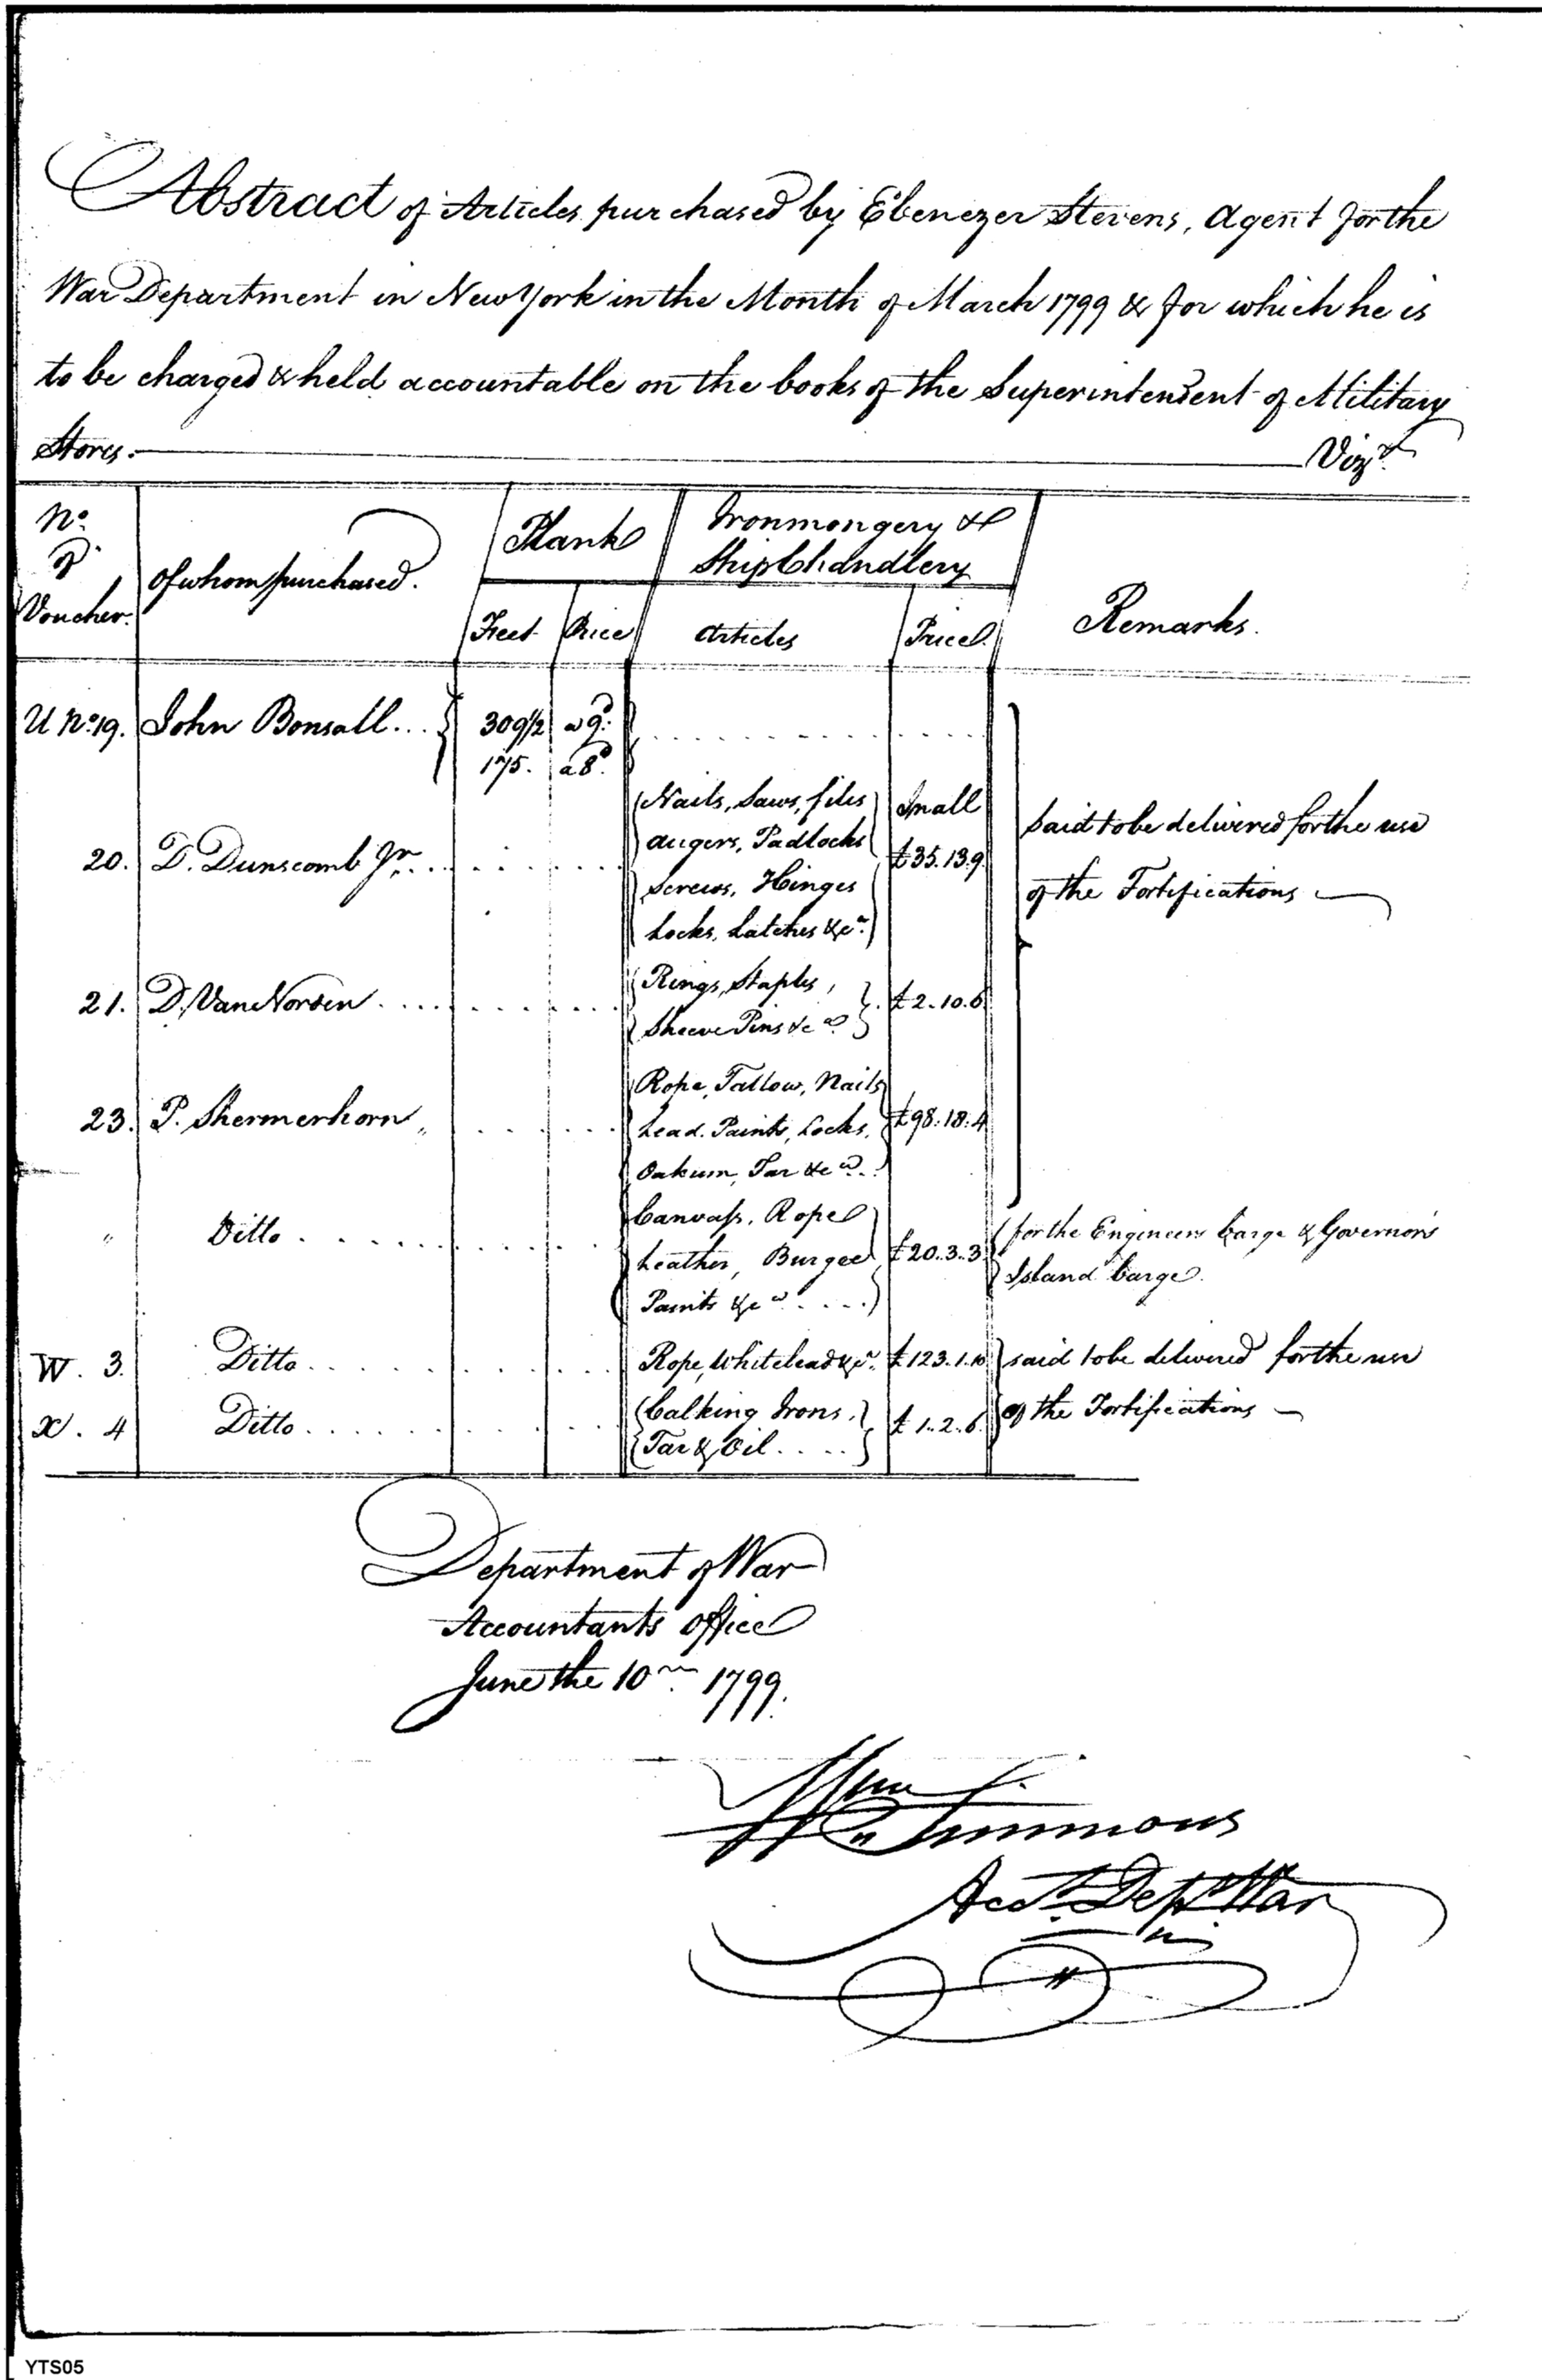 Abstract of Articles purchased by Ebenezer Stevens, Agent for the
War Department in New York in the Month of March 1799 & for which he is
to be charged & held accountable on the books of the Superintendent of Military
Stores. Vizt.
No. of Voucher. Of whom purchased. Plank Ironmongery & Ship Chandlery Remarks.
Feet Price Articles Price
U No. 19. John Bonsall... 309 1/2 a 9d.
175. a 8d.
20. D. Dunscomb Jr. Nails, Saws, files Small
Augers, Padlocks £35.13.9.
Screws, Hinges
Locks, Latches &ca.
said to be delivered for the use
of the Fortifications
21. D. Van Norden Rings, Staples, £2.10.6
Sheeve Pins &ca.
23. P. Shermerhorn Rope, Tallow, Nails
Lead. Paints, Locks, £98.18.4
Oakum, Tar &ca.
" Ditto Canvass, Rope
Leather, Burgee £20..3..3. for the Engineers barge & Governors
Paints &ca. Island barge.
W. 3. Ditto Rope, Whitelead &ca. £123.1.10 said to be delivered for the use
X. 4 Ditto Calking Irons, £1..2..6. of the Fortifications
Tar & Oil
Department of War
Accountants Office
June the 10th 1799.
Wm Simmons
Acct. Dept War
YTS05